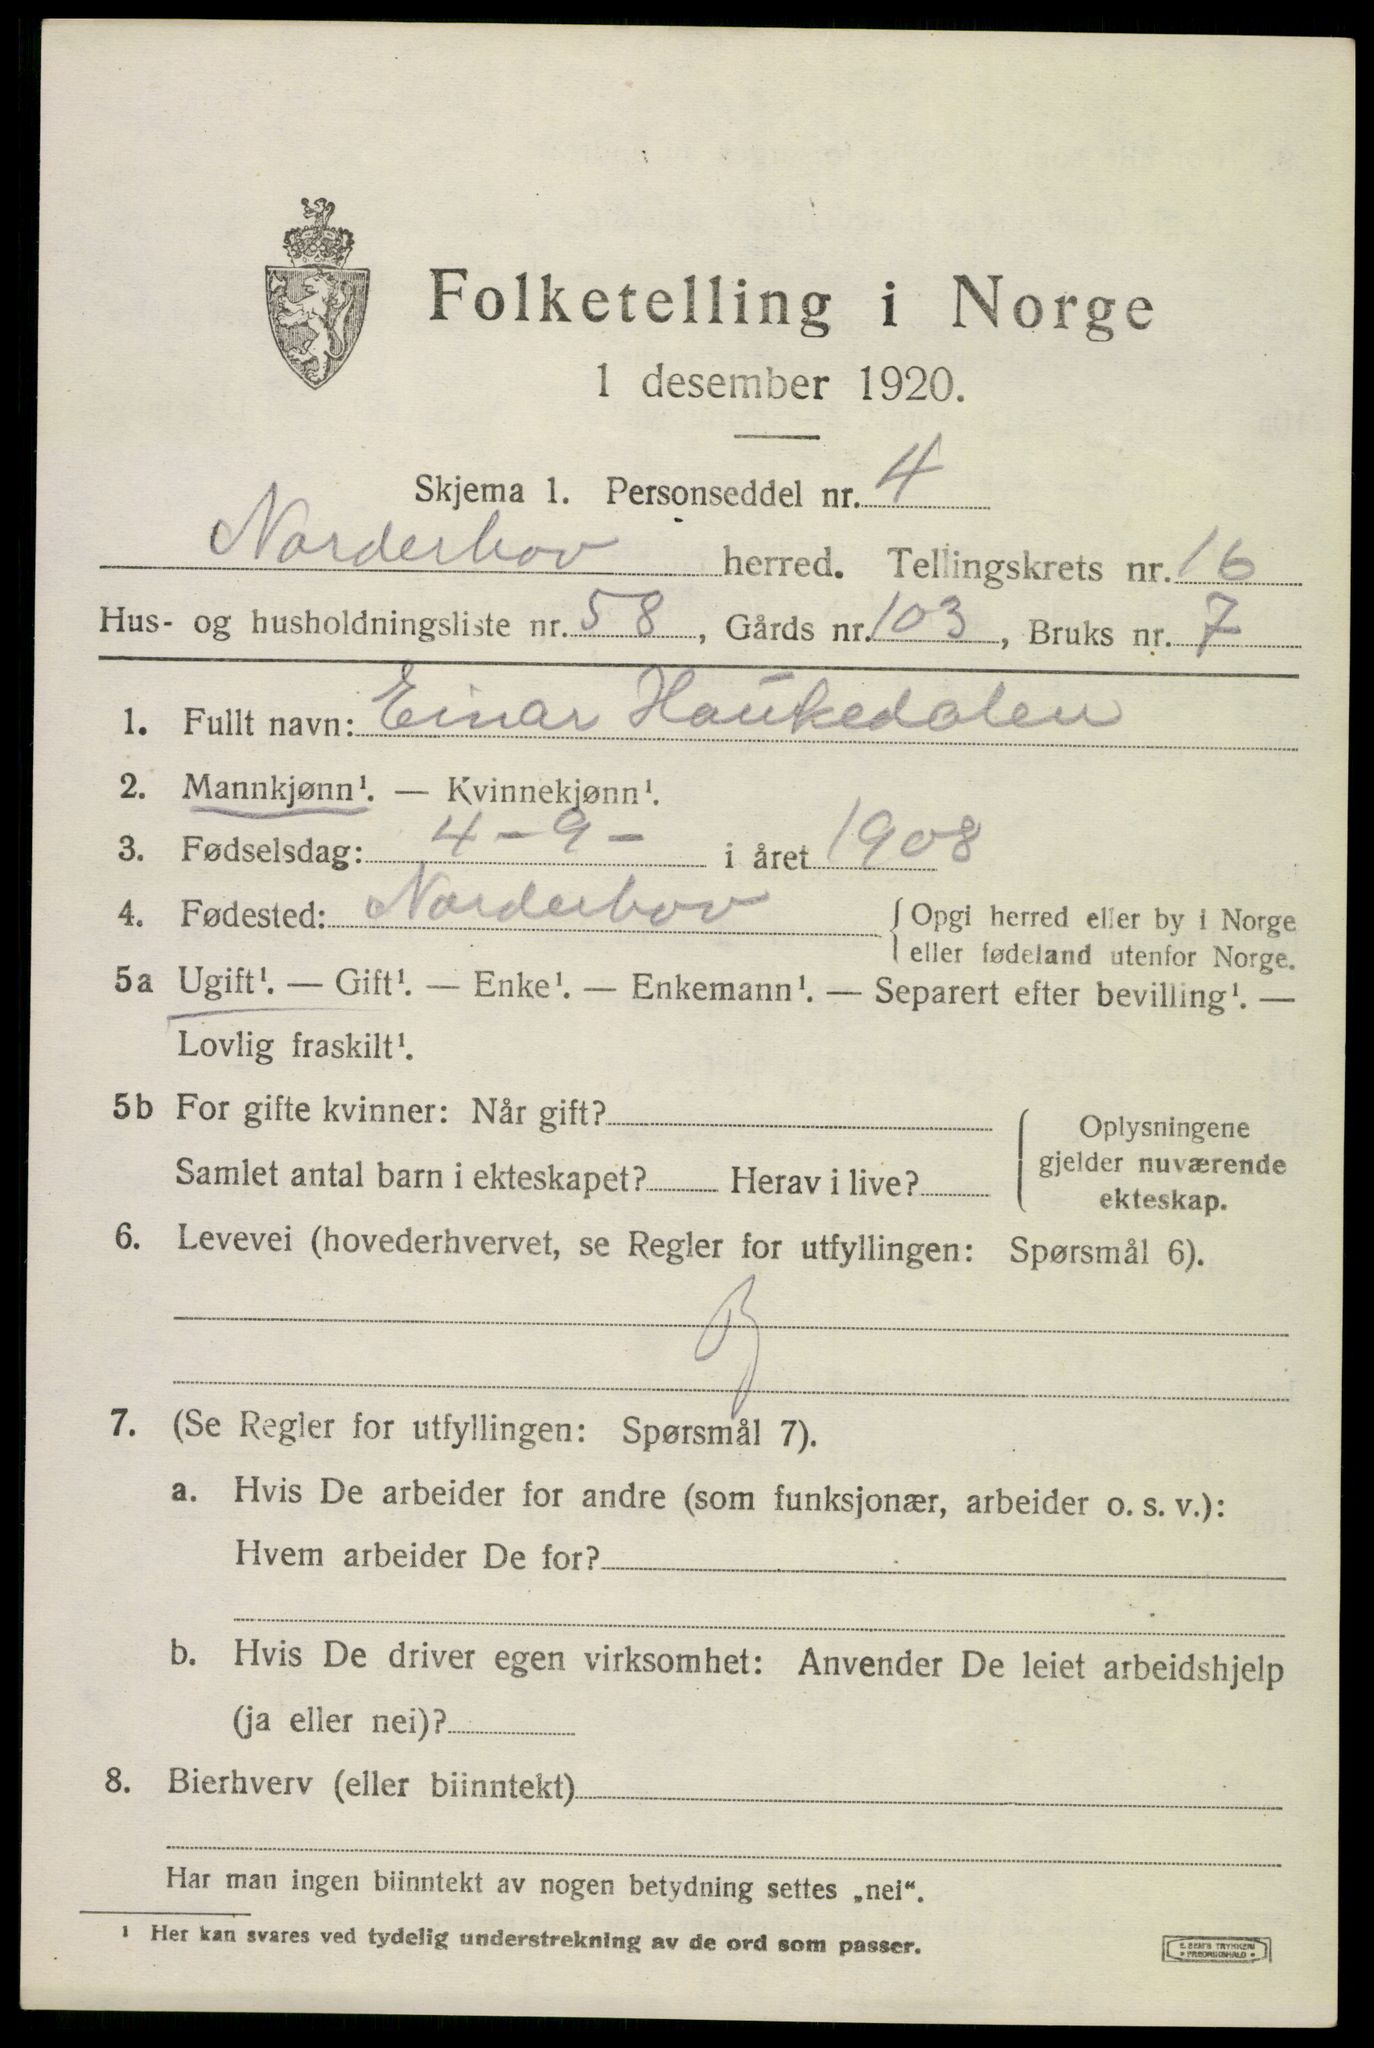 Folketelling i Norge
1 desember 1920.
Skjema 1. Personseddel nr. 4
Norderhov herred. Tellingskrets nr. 16
Hus- og husholdningsliste nr. 58, Gårds nr. 103, Bruks nr. 7
1. Fullt navn: Einar Haukedalen
2. Mannkjønn¹. — Kvinnekjønn¹.
3. Fødselsdag: 4-9- i året 1908
4. Fødested: Norderhov { Opgi herred eller by i Norge
eller fødeland utenfor Norge.
5a Ugift¹. — Gift¹. — Enke¹. — Enkemann¹. — Separert efter bevilling¹. —
Lovlig fraskilt¹.
5b For gifte kvinner: Når gift?
Samlet antal barn i ekteskapet? Herav i live?
Oplysningene
gjelder nuværende
ekteskap.
6. Levevei (hovederhvervet, se Regler for utfyllingen: Spørsmål 6).
B
7. (Se Regler for utfyllingen: Spørsmål 7).
a. Hvis De arbeider for andre (som funksjonær, arbeider o. s. v.):
Hvem arbeider De for?
b. Hvis De driver egen virksomhet: Anvender De leiet arbeidshjelp
(ja eller nei)?
8. Bierhverv (eller biinntekt)
Har man ingen biinntekt av nogen betydning settes „nei“.
¹ Her kan svares ved tydelig understrekning av de ord som passer.
E. SEM'S TRYKKERI
• FREDRIKSHALD •